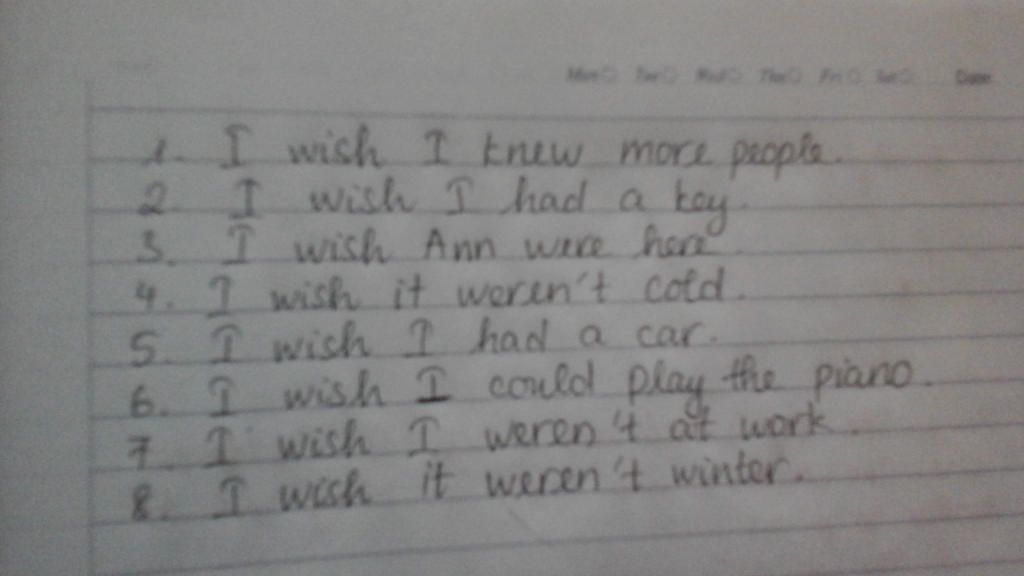 Mon Tue Wed Thu Fri Sat Date
1. I wish I knew more people.
2. I wish I had a key.
3. I wish Ann were here
4. I wish it weren't cold.
5. I wish I had a car.
6. I wish I could play the piano.
7. I wish I weren't at work.
8. I wish it weren't winter.